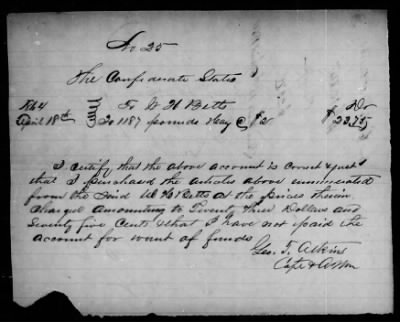 No 25
The Confederate States
1864 To W. H. Betts Dr
April 18th To 1187 pounds Hay @ $2 $23.75
I certify that the above account is correct & just
that I purchased the articles above enumerated
from the said W. H. Betts at the prices therein
charged amounting to Twenty Three Dollars and
Seventy five Cents & that I have not paid the
account for want of funds
Geo. T. Atkins
Capt & AQM